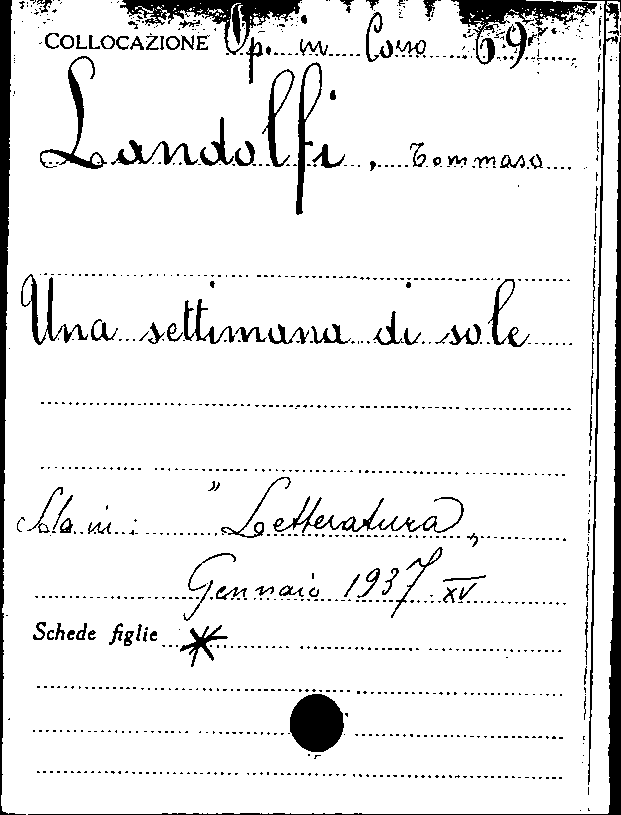 COLLOCAZIONE Op. in Corso 69
Landolfi, Tommaso
Una settimana di sole
Sta in: "Letteratura„
Gennaio 1937 XV
Schede figlie *